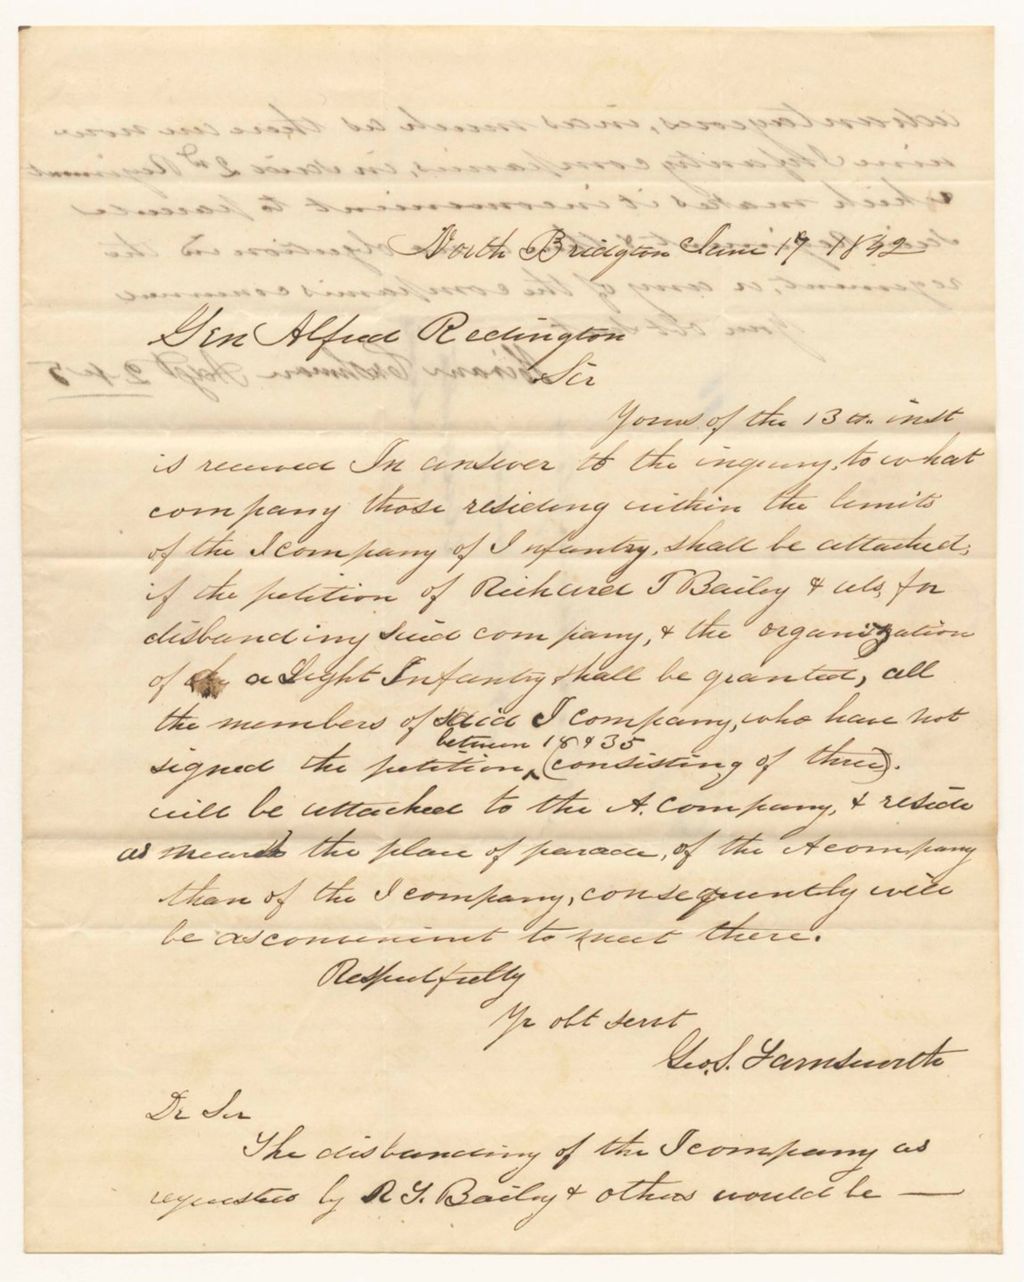 North Bridgton June 17 1842
Gen Alfred Redington
Sir
Yours of the 13th. inst
is received In answer to the inquiry, to what
company those residing within the limits
of the I company of Infantry, shall be attached,
if the petition of Richard T Baily & als, for
disbanding said company, & the organization
of a Light Infantry shall be granted, all
the members of said I company, who have not
between 18 & 35
signed the petition, ^ (consisting of three).
will be attached to the A. company, & reside
as near the place of parade, of the A company
than of the I company, consequently will
be as convenient to meet there.
Respectfully
Yr obt servt
Geo. S. Farnsworth
Dr Sir
The disbanding of the I company as
requested by R T. Baily & others would be —